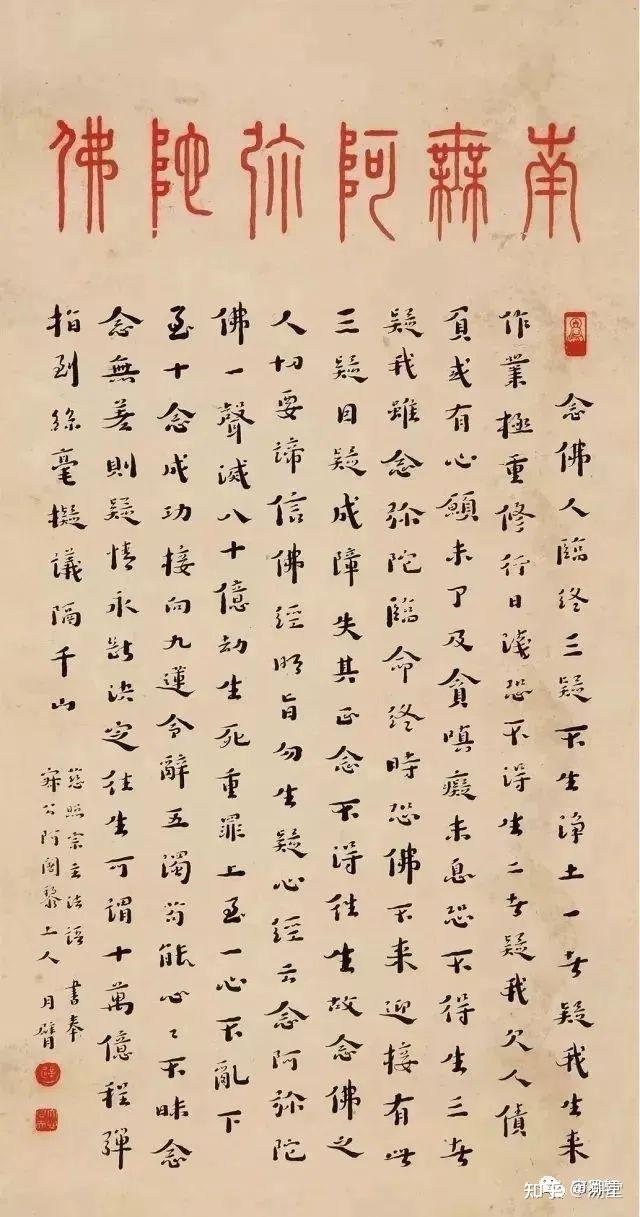 南無阿弥陀佛
念佛人臨終三疑不生淨土一者疑我生来
作業極重修行日淺恐不得生二者疑我欠人債
負或有心願未了及貪嗔癡未息恐不得生三者
疑我雖念弥陀臨命終時恐佛不来迎接有此
三疑因疑成障失其正念不得往生故念佛之
人切要諦信佛經明旨勿生疑心經云念阿弥陀
佛一聲滅八十億劫生死重罪上至一心不亂下
至十念成功接向九蓮令辭五濁苟能心々不昧念
念無差則疑情永斷決定往生可謂十萬億程彈
指到絲毫擬議隔千山
慈照宗主法語 書奉
寂公阿闍黎上人 月臂
知乎 @溯星